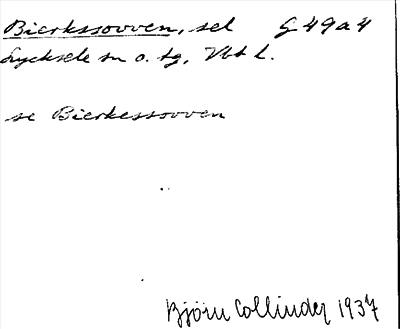 Bierkssovven, sel G 49 a 4
Lycksele sn o. tg, Vbt L.
se Bierkessovven
Björn Collinder 1937